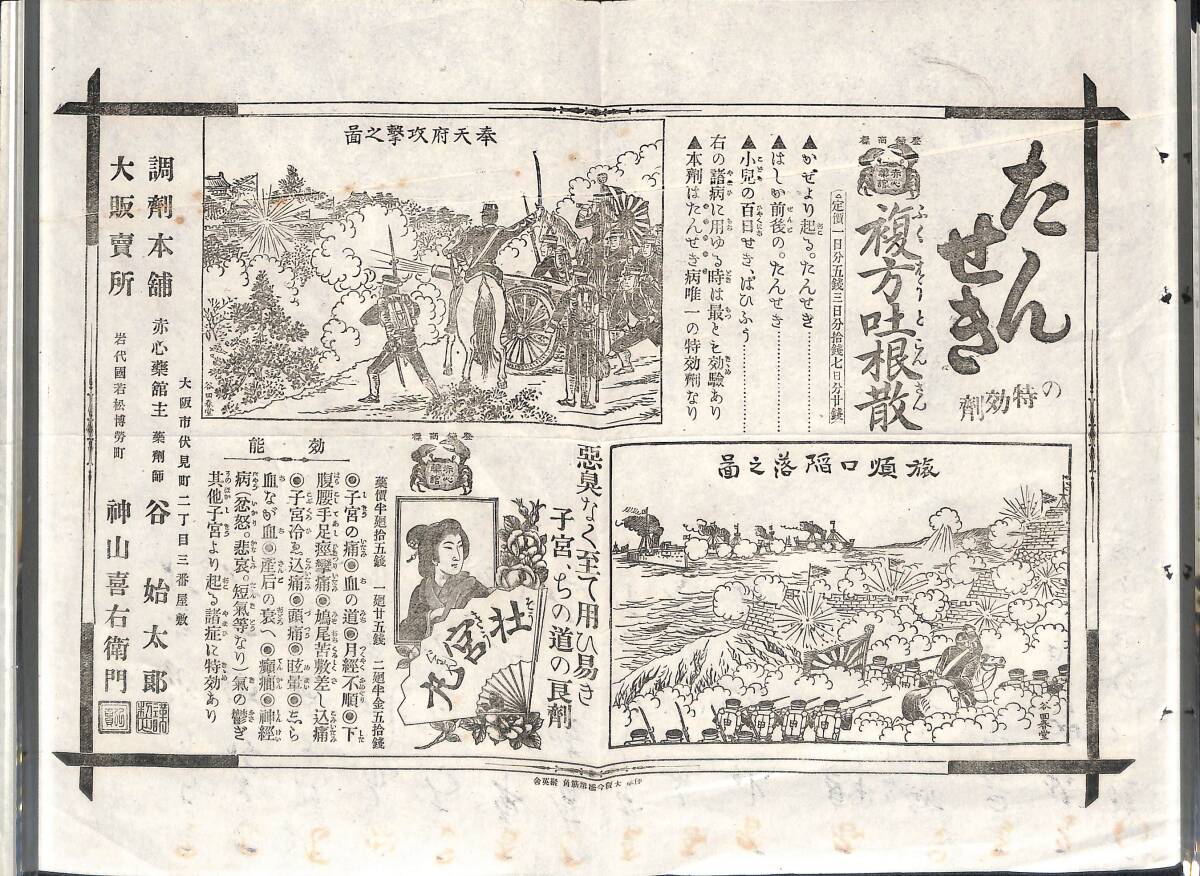 たんせき
の特効劑
登録商標
赤心藥舘
複方吐根散
ふくほうとこんさん
定價一日分五錢三日分拾錢七日分廿錢
▲かぜより起る。たんせき
▲はしか前後の。たんせき
▲小兒の百日せき、ぜひふう
右の諸病に用ゆる時は最とも効驗あり
▲本劑はたんせき病唯一の特効劑なり
奉天府攻撃之圖
谷田春堂
旅順口陥落之圖
谷田春堂
惡臭なく至て用ひ易き
子宮、ちの道の良劑
壮宮丸
登録商標
赤心藥舘
藥價半廻拾五錢 一廻廿五錢 二廻半金五拾錢
効能
◎子宮の痛◎血の道◎月經不順◎下
腹腰手足痙攣痛◎鳩尾苦敷差し込痛
◎子宮冷ゑ込痛◎頭痛◎眩暈◎
血なが血◎産后の衰へ◎癲癇◎神經
病(忿怒。悲哀。短氣等なり)氣の鬱ぎ
其他子宮より起る諸症に特効あり
大阪市伏見町二丁目三番屋敷
調劑本舖 赤心藥舘主 藥劑師 谷 始太郎
大販賣所 岩代國若松博勞町 神山喜右衛門